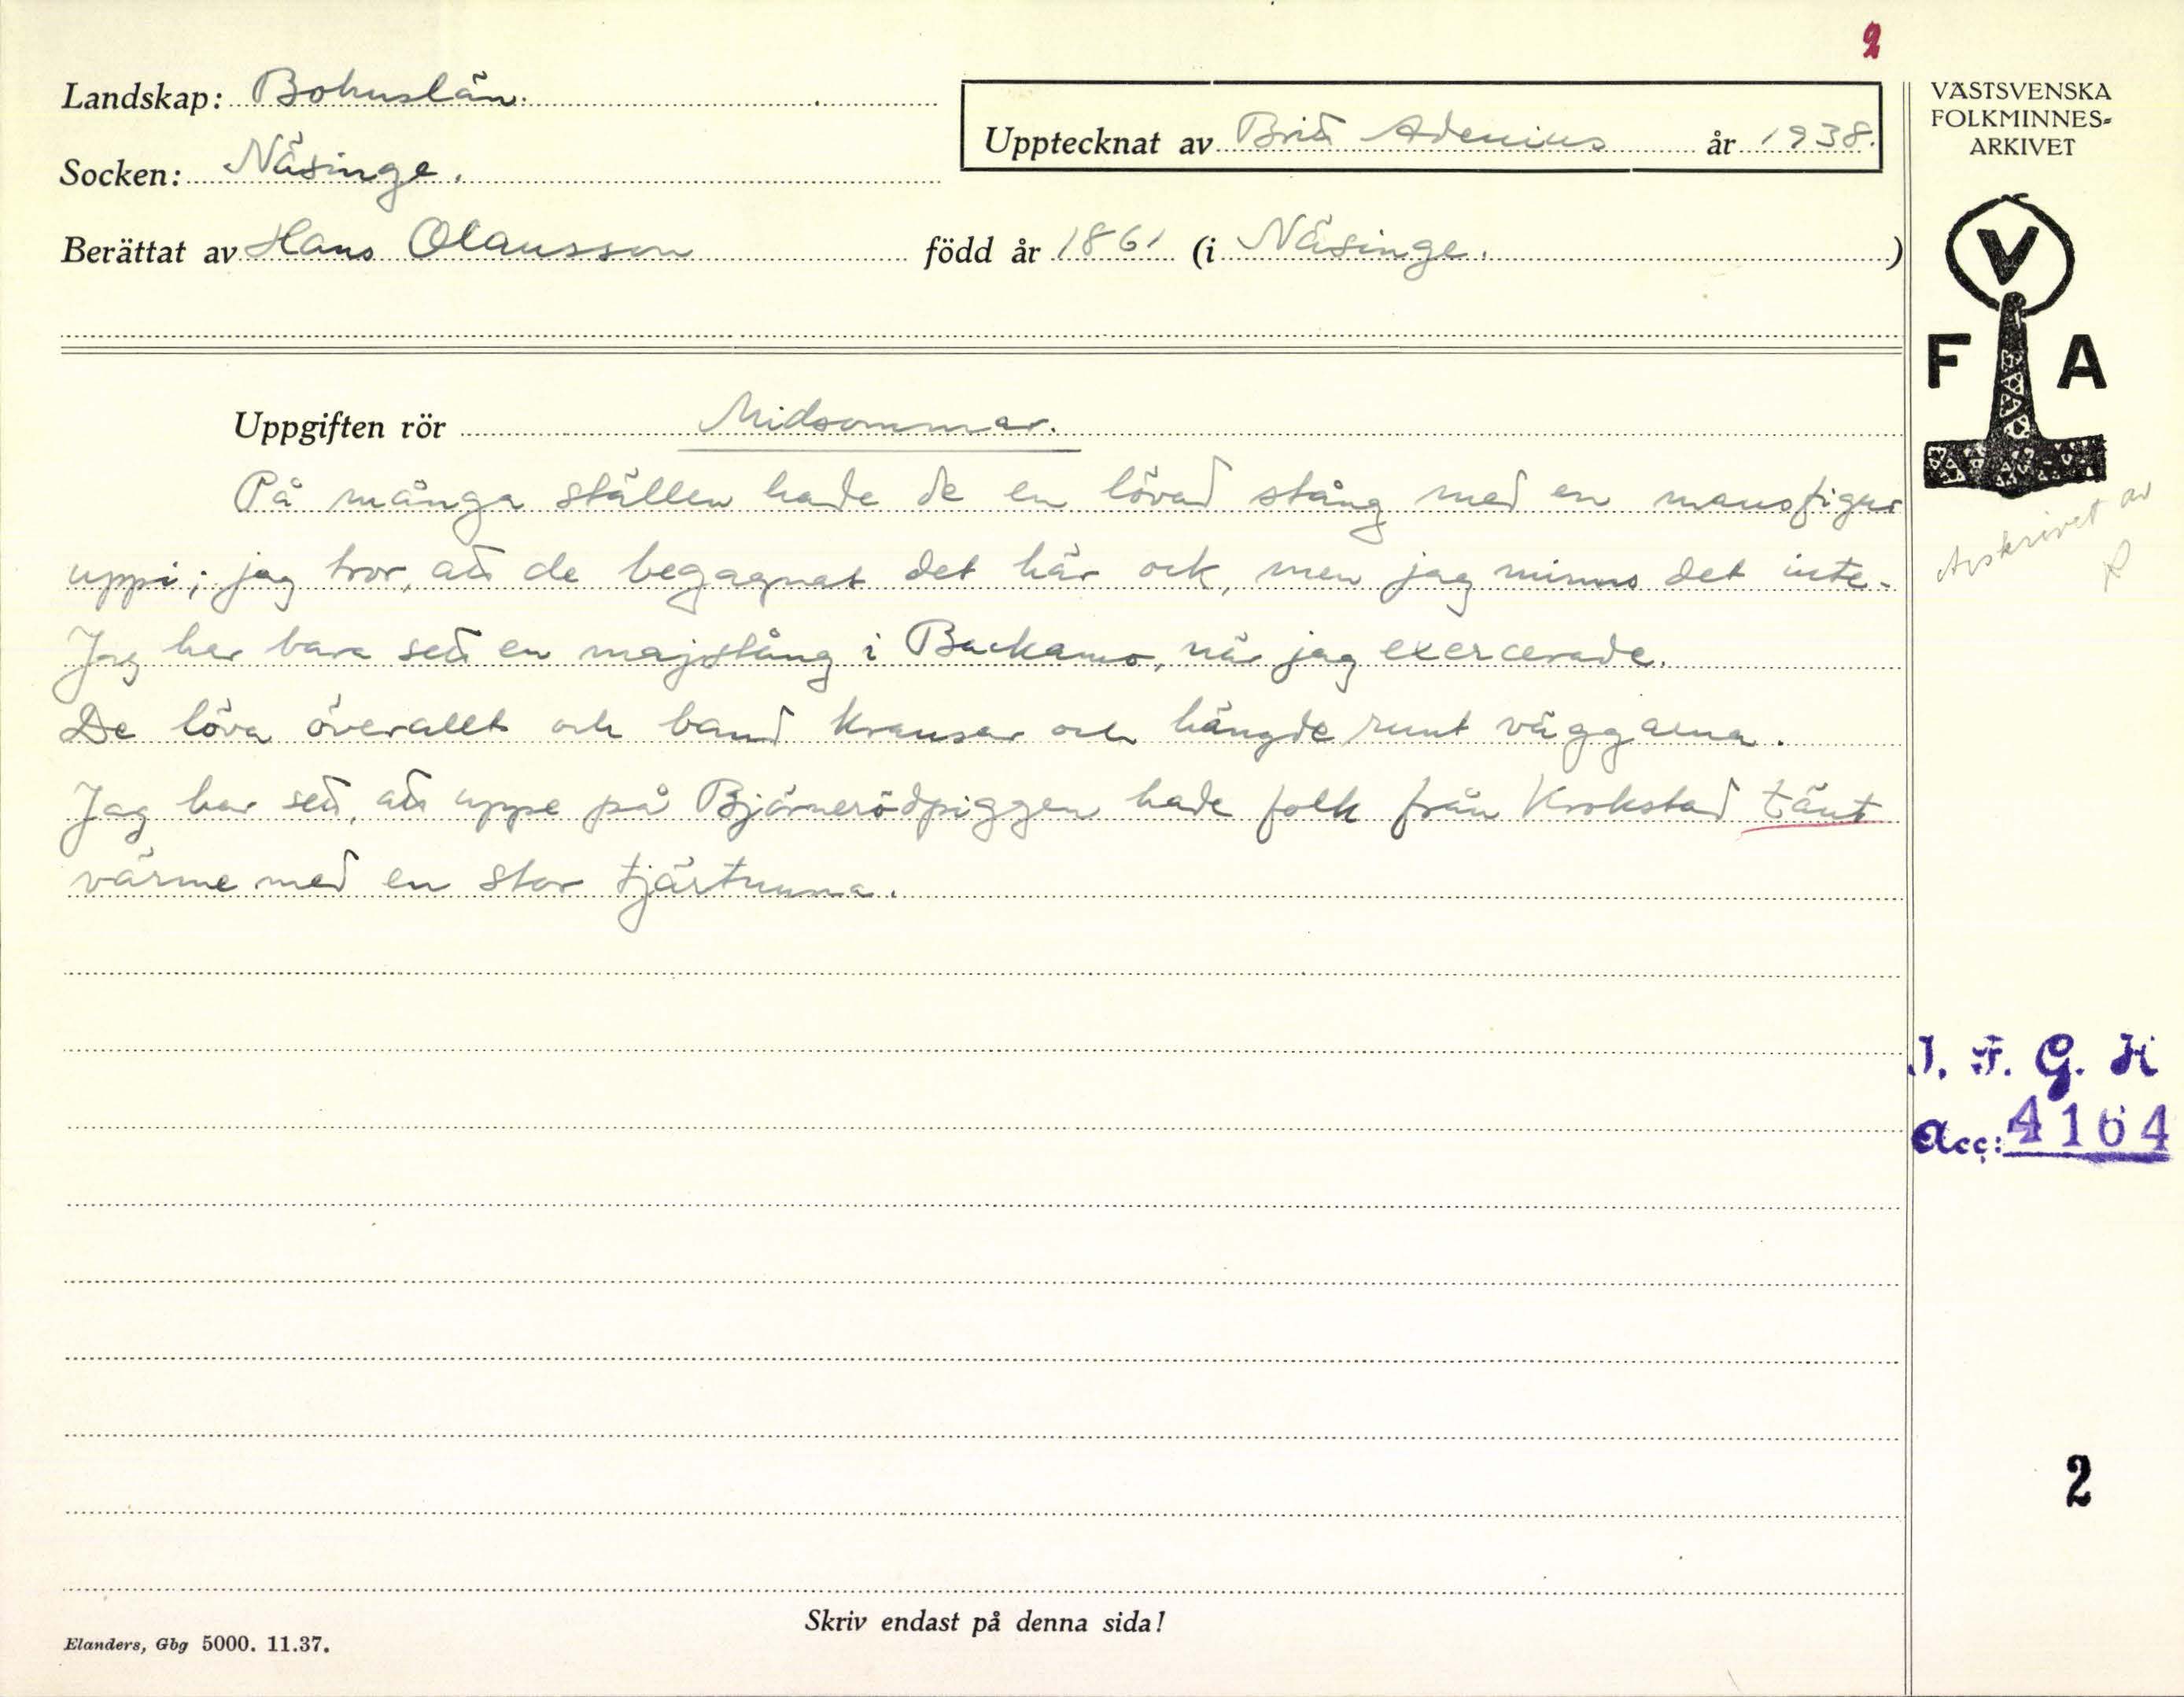 2
Landskap: Bohuslän.
Socken: Näsinge.
Upptecknat av Britt Adenius år 1938.
Berättat av Hans Olausson född år 1861 (i Näsinge.)
Uppgiften rör Midsommar.
På många ställen hade de en lövad stång med en mansfigur
uppi; jag tror, att de begagnat det här ock, men jag minns det inte.
Jag har bara sett en majstång i Backamo, när jag exercerade.
De löva överallt och band kransar och hängde runt väggarna.
Jag har sett, att uppe på Björnerödpiggen hade folk från Krokstad tänt
värme med en stor tjärtunna.
VÄSTSVENSKA
FOLKMINNES-
ARKIVET
V
F A
Avskrivet av
I. F. G. H
Acc: 4164
2
Skriv endast på denna sida!
Elanders, Gbg 5000. 11.37.